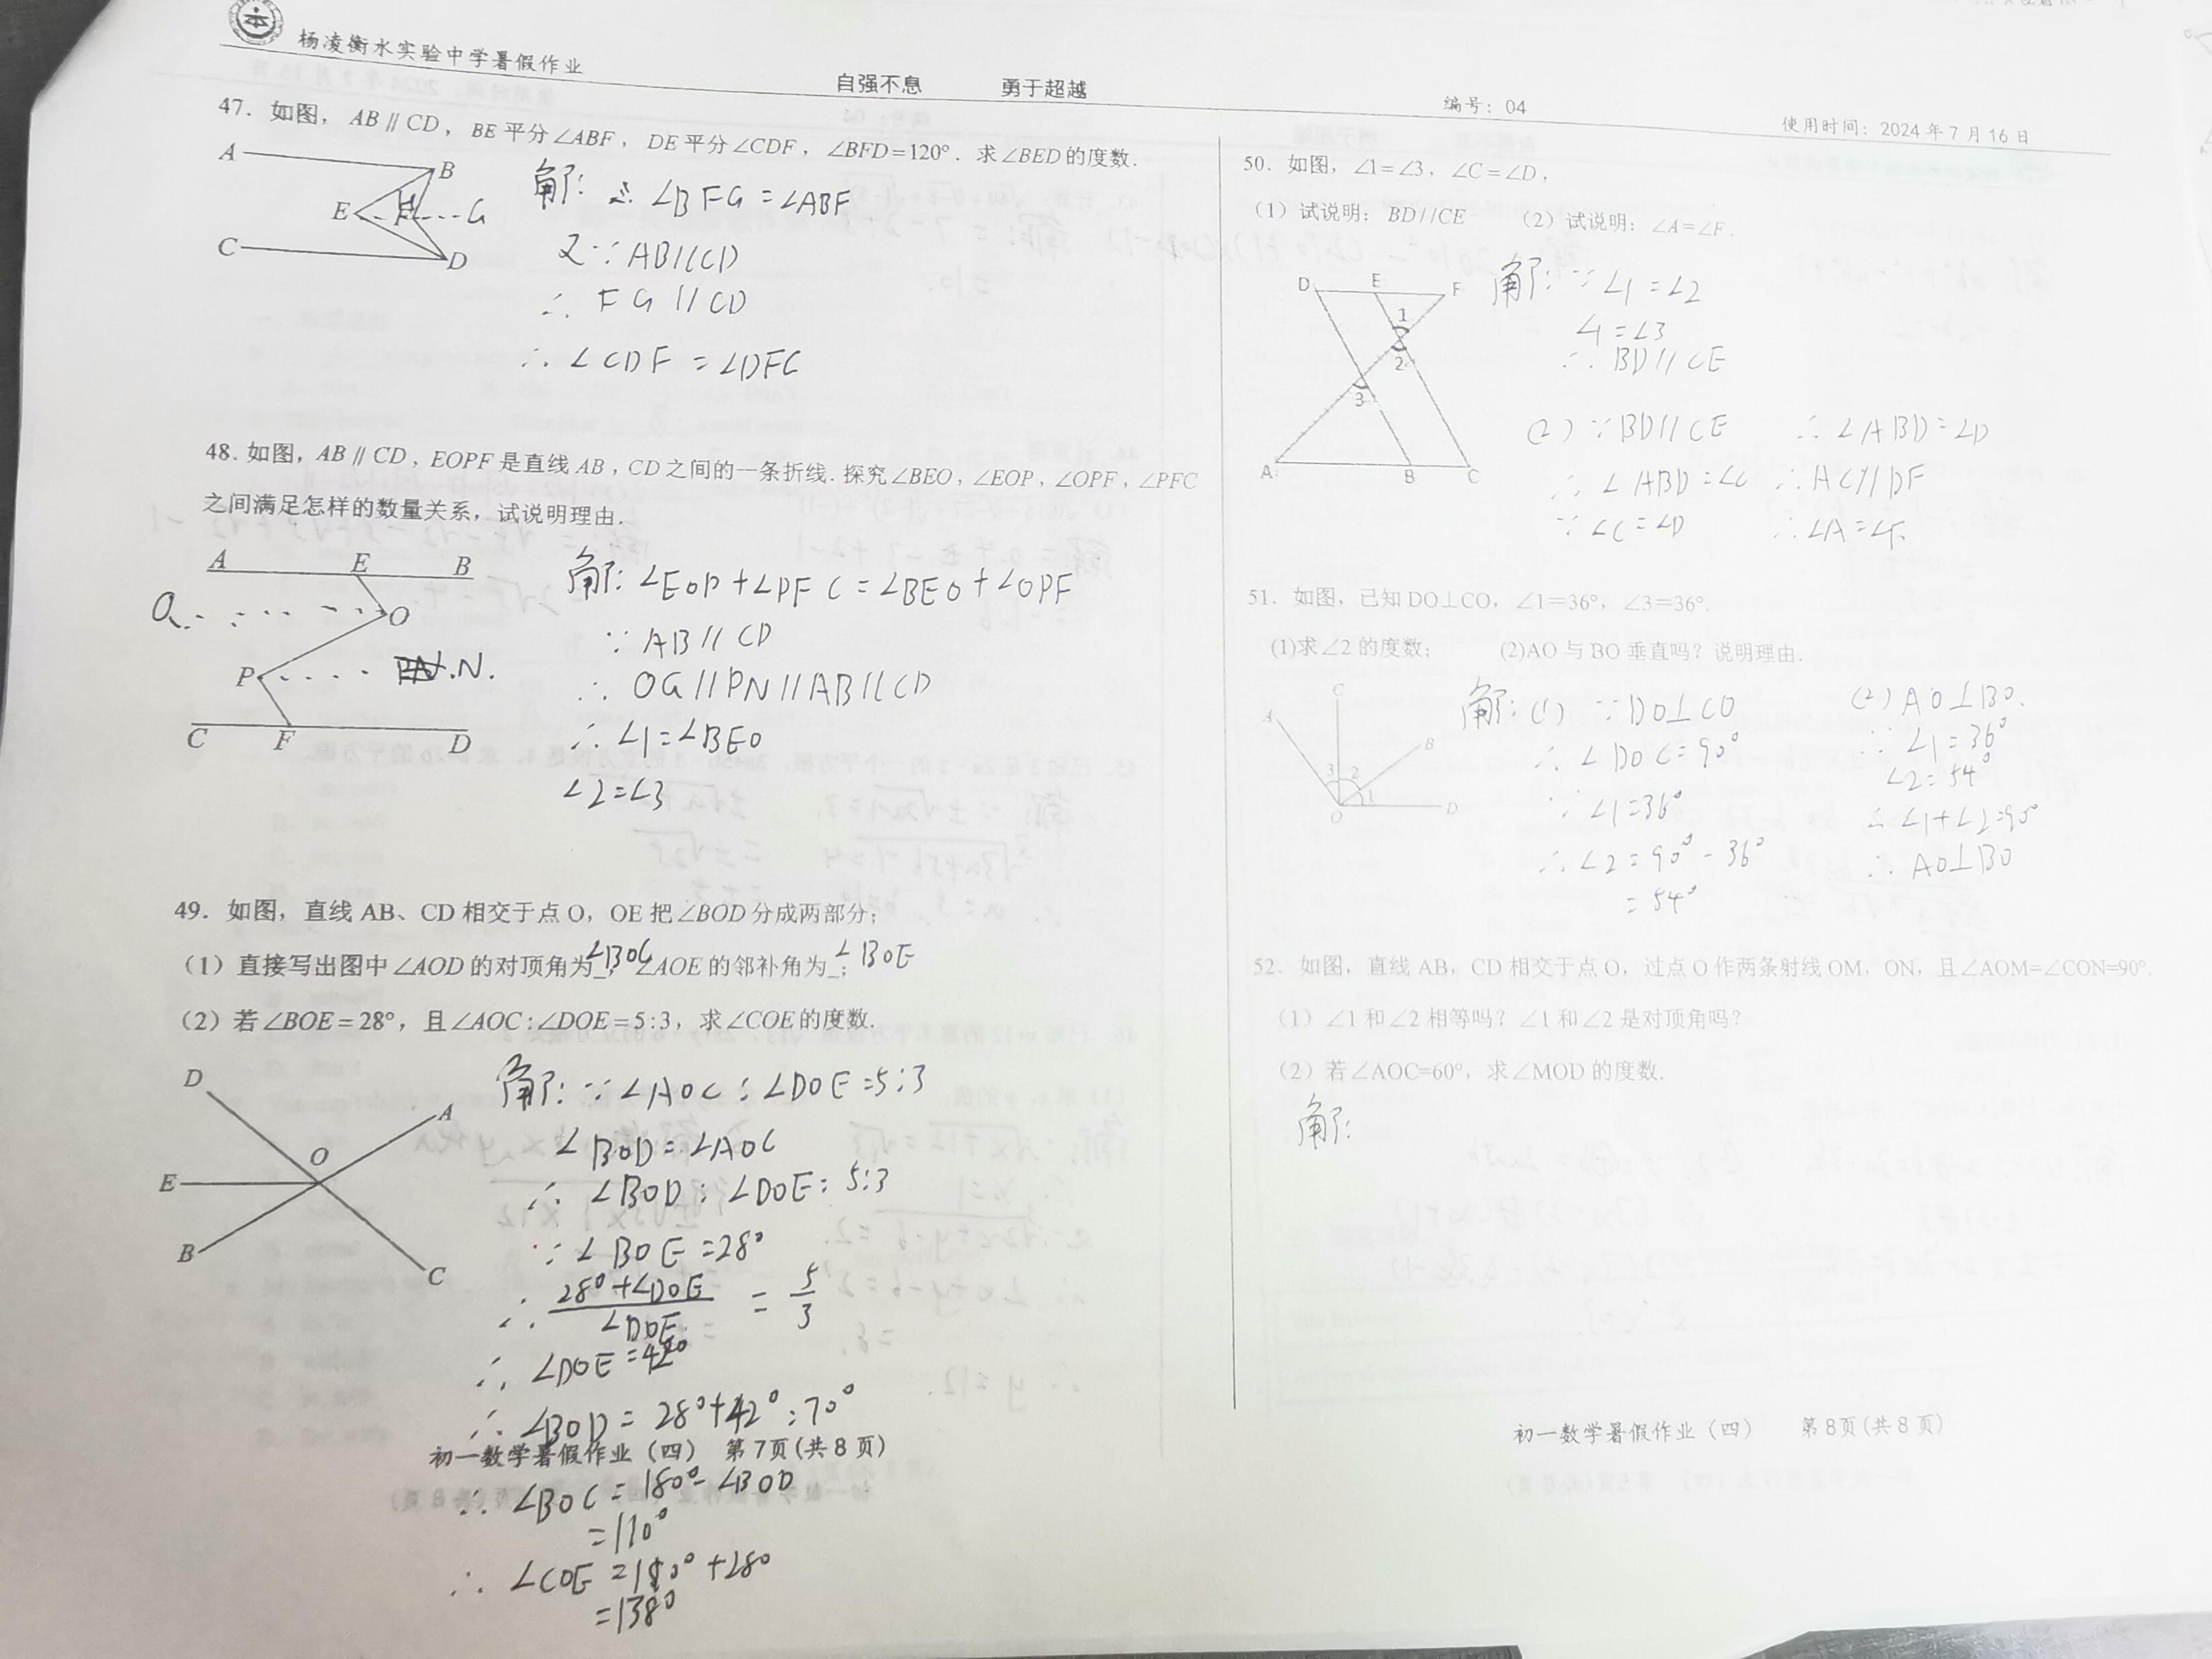 杨凌衡水实验中学暑假作业
自强不息 勇于超越
编号：04
使用时间：2024年7月16日
47．如图，AB∥CD，BE平分∠ABF，DE平分∠CDF，∠BFD=120°．求∠BED的度数．
A
B
E
F
G
C
D
解： ∴ ∠BFG=∠ABF
∵ AB∥CD
∴ FG∥CD
∴ ∠CDF=∠DFG
48．如图，AB∥CD，EOPF是直线AB，CD之间的一条折线．探究∠BEO，∠EOP，∠OPF，∠PFC
之间满足怎样的数量关系，试说明理由．
A E B
G
O
P
N.
C F D
解：∠EOP+∠PFC=∠BEO+∠OPF
∵ AB∥CD
∴ OG∥PN∥AB∥CD
∴ ∠1=∠BEO
∠2=∠3
49．如图，直线AB、CD相交于点O，OE把∠BOD分成两部分；
（1）直接写出图中∠AOD的对顶角为∠BOC，∠AOE的邻补角为∠BOE；
（2）若∠BOE=28°，且∠AOC:∠DOE=5:3，求∠COE的度数．
D
A
O
E
B
C
解：∵∠AOC:∠DOE=5:3
∠BOD=∠AOC
∴ ∠BOD:∠DOE=5:3
∵ ∠BOE=28°
∴ 28°+∠DOE/∠DOE = 5/3
∴ ∠DOE=42°
∴ ∠BOD=28°+42°=70°
初一数学暑假作业（四） 第7页(共8页)
∴ ∠BOC=180°-∠BOD
=110°
∴ ∠COE=110°+28°
=138°
50．如图，∠1=∠3，∠C=∠D，
（1）试说明：BD//CE （2）试说明：∠A=∠F．
D E F
1
2
3
A B C
解：∵∠1=∠2
∠1=∠3
∴ BD∥CE
(2) ∵BD∥CE
∴ ∠ABD=∠C
∵ ∠C=∠D
∴ ∠ABD=∠D
∴ AC∥DF
∴ ∠A=∠F
51．如图，已知DO⊥CO，∠1=36°，∠3=36°．
(1)求∠2的度数； (2)AO与BO垂直吗？说明理由．
C
A
B
3 2
1
O
D
解：(1) ∵DO⊥CO
∴ ∠DOC=90°
∵ ∠1=36°
∴ ∠2=90°-36°
=54°
(2) AO⊥BO.
∵ ∠1=36°
∠2=54°
∴ ∠1+∠2=90°
∴ AO⊥BO
52．如图，直线AB，CD相交于点O，过点O作两条射线OM，ON，且∠AOM=∠CON=90°．
（1）∠1和∠2相等吗？∠1和∠2是对顶角吗？
（2）若∠AOC=60°，求∠MOD的度数．
解：
初一数学暑假作业（四） 第8页(共8页)